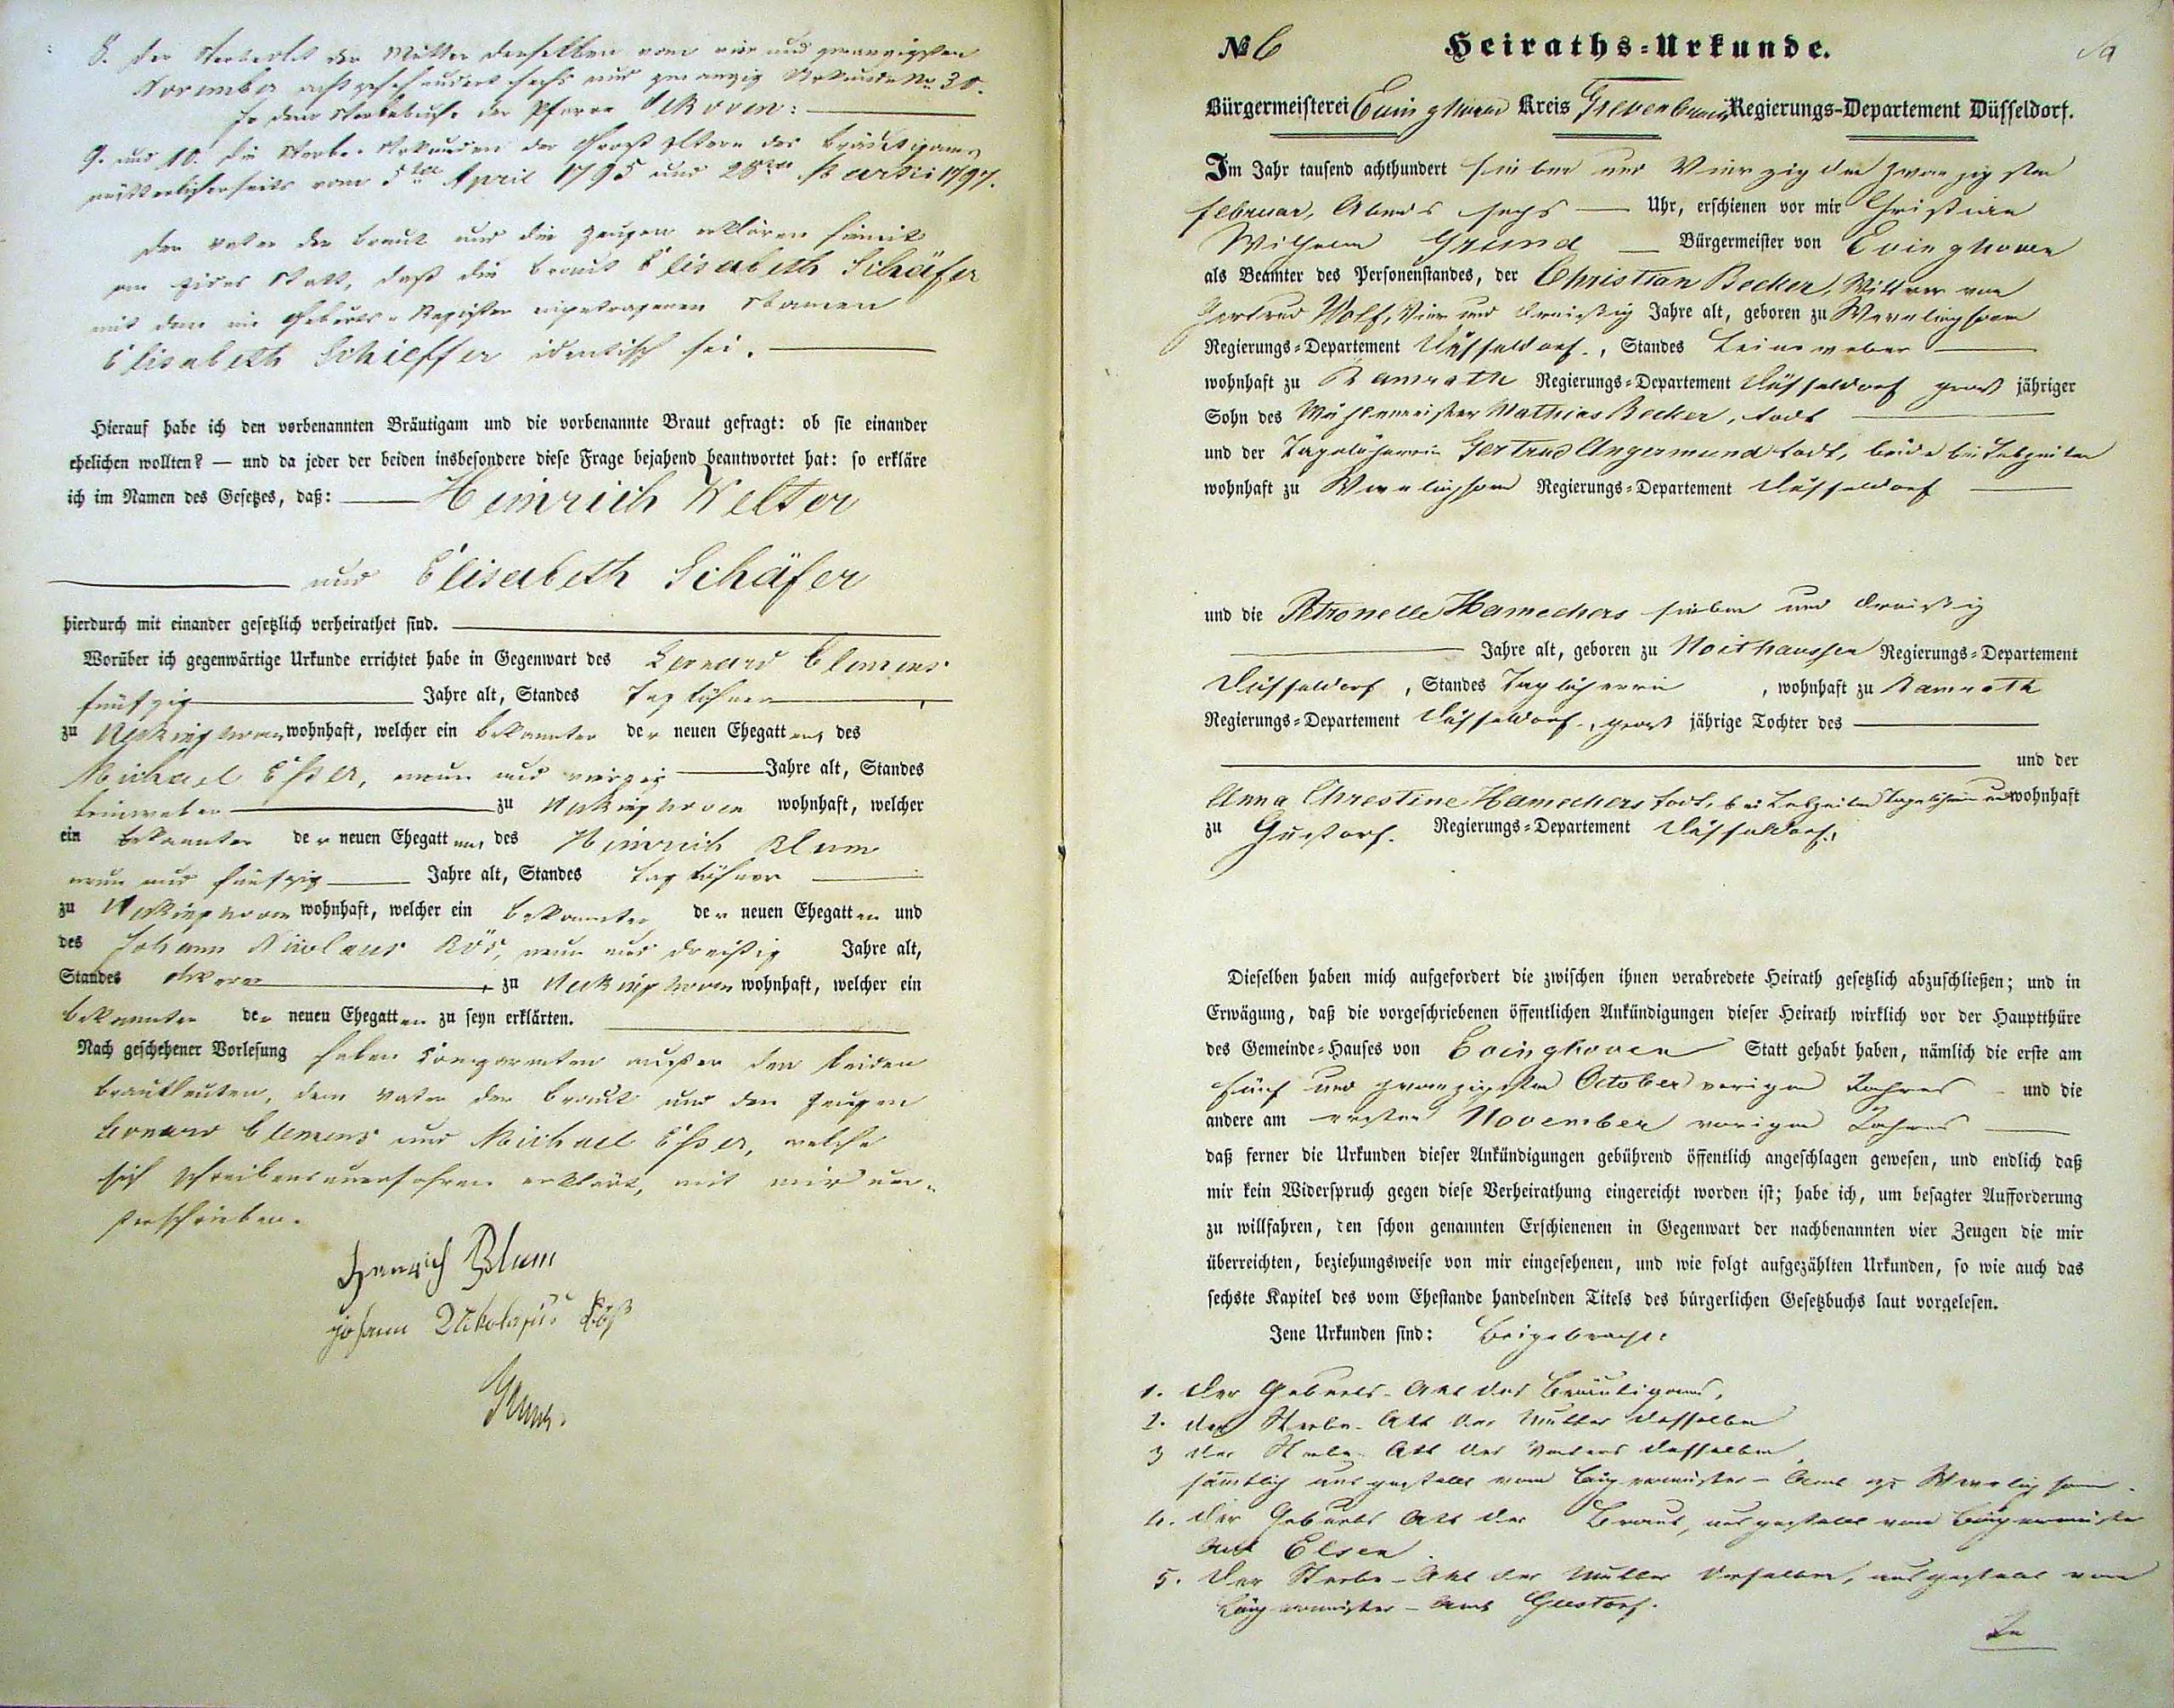 8. der Sterbeakt der Mutter derselben vom vier und zwanzigsten
November achtzehnhundert sechs und zwanzig Urkunde No 30.
In dem Sterbebuche der Pfarre Oekoven:
9. und 10. die Sterbe-Urkunden der Groß Eltern des Bräutigams
mütterlicherseits vom 5ten April 1795 und 28ten Martii 1797.
Der Vater der Braut und die Zeugen erklären hiermit
an Eides Statt, daß die Braut Elisabeth Schäfer
mit dem im Geburts-Register eingetragenen Namen
Elisabeth Schieffer identisch sei.
Hierauf habe ich den vorbenannten Bräutigam und die vorbenannte Braut gefragt: ob sie einander
ehelichen wollten? — und da jeder der beiden insbesondere diese Frage bejahend beantwortet hat: so erkläre
ich im Namen des Gesetzes, daß: Heinrich Welter
und Elisabeth Schäfer
hierdurch mit einander gesetzlich verheirathet sind.
Worüber ich gegenwärtige Urkunde errichtet habe in Gegenwart des Leonard Clemens
fünfzig Jahre alt, Standes Taglöhner
zu wohnhaft, welcher ein Bekannter der neuen Ehegatten, des
Michael Eßer, neun und vierzig Jahre alt, Standes
Leinweber zu wohnhaft, welcher
ein Bekannter der neuen Ehegatten, des Heinrich Blum
neun und fünfzig Jahre alt, Standes Taglöhner
zu wohnhaft, welcher ein Bekannter der neuen Ehegatten und
des Johann Nicolaus Rös, neun und dreißig Jahre alt,
Standes Ackerer, zu wohnhaft, welcher ein
Bekannter der neuen Ehegatten zu seyn erklärten.
Nach geschehener Vorlesung haben Comparenten außer den beiden
Brautleuten, dem Vater der Braut und den Zeugen
Leonard Clemens und Michael Eßer, welche
sich Schreibensunerfahren erklärt, mit mir un-
terschrieben.
Heinrich Blum
Johann Nikolaus Röß
Grund.
№ 6 Heiraths-Urkunde.
Bürgermeisterei Evinghoven Kreis Grevenbroich Regierungs-Departement Düsseldorf.
Im Jahr tausend achthundert sieben und Vierzig den zwanzigsten
Februar, Abends sechs Uhr, erschienen vor mir Christian
Wilhelm Grund Bürgermeister von Evinghoven
als Beamter des Personenstandes, der Christian Becker, Wittwer von
Gertrud Wolf, Vier und dreißig Jahre alt, geboren zu Wevelinghoven
Regierungs-Departement Düsseldorf, Standes Leineweber
wohnhaft zu Ramrath Regierungs-Departement Düsseldorf groß jähriger
Sohn des Mühlenmeister Mathias Becker, todt
und der Tagelöhnerin Gertrud Angermund todt, beide bei Lebzeiten
wohnhaft zu Wevelinghoven Regierungs-Departement Düsseldorf
und die Petronelle Hamechers sieben und dreißig
Jahre alt, geboren zu Noithaussen Regierungs-Departement
Düsseldorf, Standes Taglöhnerin, wohnhaft zu Ramrath
Regierungs-Departement Düsseldorf, groß jährige Tochter des
und der
Anna Christine Hamechers todt, bei Lebzeiten Tagelöhnerin und wohnhaft
zu Gustorf. Regierungs-Departement Düsseldorf.
Dieselben haben mich aufgefordert die zwischen ihnen verabredete Heirath gesetzlich abzuschließen; und in
Erwägung, daß die vorgeschriebenen öffentlichen Ankündigungen dieser Heirath wirklich vor der Hauptthüre
des Gemeinde-Hauses von Evinghoven Statt gehabt haben, nämlich die erste am
fünf und zwanzigsten October vorigen Jahres und die
andere am ersten November vorigen Jahres
daß ferner die Urkunden dieser Ankündigungen gebührend öffentlich angeschlagen gewesen, und endlich daß
mir kein Widerspruch gegen diese Verheirathung eingereicht worden ist; habe ich, um besagter Aufforderung
zu willfahren, den schon genannten Erschienenen in Gegenwart der nachbenannten vier Zeugen die mir
überreichten, beziehungsweise von mir eingesehenen, und wie folgt aufgezählten Urkunden, so wie auch das
sechste Kapitel des vom Ehestande handelnden Titels des bürgerlichen Gesetzbuchs laut vorgelesen.
Jene Urkunden sind: Beigebracht:
1. Der Geburts-Akt des Bräutigams,
2. der Sterbe-Akt der Mutter desselben
3 der Sterbe-Akt des Vaters desselben,
sämtlich ausgestellt vom Bürgermeister-Amt zu Wevelinghoven.
4. Der Geburts Akt der Braut, ausgestellt vom Bürgermeister
Amt Elsen.
5. Der Sterbe-Akt der Mutter derselben, ausgestellt vom
Bürgermeister-Amt Gustorf.